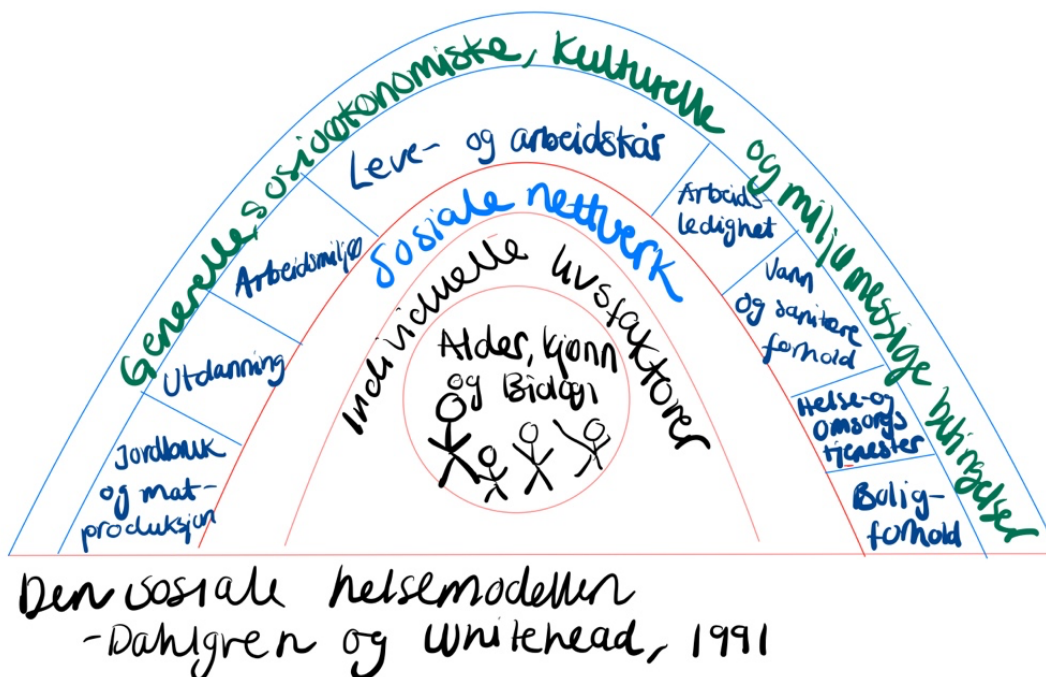 Generelle, sosioøkonomiske, kulturelle og miljømessige betingelser
Leve- og arbeidskår
Arbeidsmiljø
Utdanning
Jordbruk
og mat-
produksjon
Arbeids-
ledighet
Vann
og sanitære
forhold
Helse- og
omsorgs
tjenester
Bolig-
forhold
Sosiale nettverk
Individuelle livsfaktorer
Alder, kjønn
og Biologi
Den sosiale helsemodellen
-Dahlgren og Whitehead, 1991